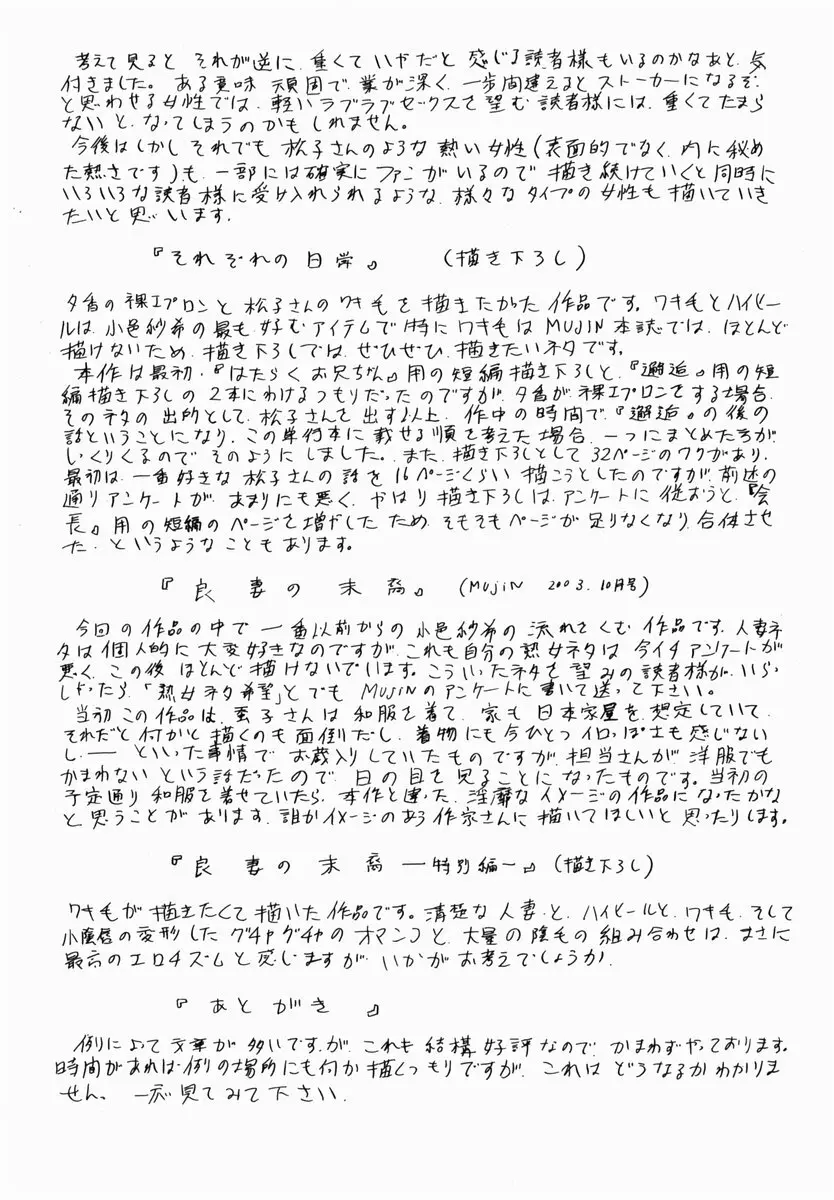 考えて見ると それが逆に、重くて いやだと 感じる読者様もいるのかなあと、気
付きました。 ある意味 頑固で、業が深く、一歩間違えるとストーカーになるぞ、
と思わせる女性では、軽いラブラブセックスを望む読者様には、重くてたまら
ないと、なってしまうのかもしれません。
今後はしかし それでも 松子さんのような 熱い女性(表面的でなく、内に秘め
た熱さです)も、一部には確実にファンがいるので 描き続けていくと同時に
いろいろな読者様に受け入れられるような、様々なタイプの女性も描いていき
たいと思います。
『それぞれの日常』 (描き下ろし)
夕香の裸エプロンと 松子さんのワキ毛を描きたかった作品です。ワキ毛とハイヒー
ルは、小邑紗希の最も好むアイテムで 特にワキ毛はMUJIN本誌では、ほとんど
描けないため、描き下ろしでは、ぜひぜひ、描きたいネタです。
本作は最初、『はたらくお兄ちゃん』用の短編描き下ろしと、『邂逅』用の短
編描き下ろしの 2本にわけるつもりだったのですが、夕香が、裸エプロンをする場合、
そのネタの出所として、松子さんを出す以上、作中の時間で、『邂逅』の後の
話ということになり、この単行本に載せる順を考えた場合、一つにまとめた方が、
しっくりくるので そのようにしました。また、描き下ろしとして32ページのワクがあり、
最初は、一番好きな松子さんの話を16ページくらい描こうとしたのですが、前述の
通りアンケートが、あまりにも悪く、やはり描き下ろしは、アンケートに従おうと、『会
長』用の短編のページを増やしたため、そもそもページが足りなくなり、合体させ
た、というようなこともあります。
『良妻の末裔』 (MUJIN 2003.10月号)
今回の作品の中で一番以前からの小邑紗希の流れをくむ作品です。人妻ネ
タは個人的に大変好きなのですが、これも自分の熟女ネタは今イチアンケートが
悪く、この後ほとんど描けないでいます。こういったネタを望みの読者様が、いらっ
しゃったら、「熟女ネタ希望」とでも MUJINのアンケートに書いて送って下さい。
当初この作品は、子さんは和服を着て、家も日本家屋を想定していて、
それだと何かと描くのも面倒だし、着物にも今ひとつイロっぽさも感じない
し、── といった事情で お蔵入りしていたものですが、担当さんが、洋服でも
かまわないという話だったので、日の目を見ることになったものです。当初の
予定通り和服を着せていたら、本作と違った、淫靡なイメージの作品になったかな
と思うことがあります。誰かイメージのあう作家さんに描いてほしいと思ったりします。
『良妻の末裔―特別編―』(描き下ろし)
ワキ毛が描きたくて描いた作品です。清楚な人妻と、ハイヒールと、ワキ毛、そして
小陰唇の変形したグチャグチャのオマンコと、大量の陰毛の組み合わせは、まさに
最高のエロチズムと感じますが、いかがお考えでしょうか。
『あとがき』
例によって文章が多いですが、これも結構好評なので、かまわずやっております。
時間があれば例の場所にも何か描くつもりですが、これはどうなるかわかりま
せん。 一応見てみて下さい。